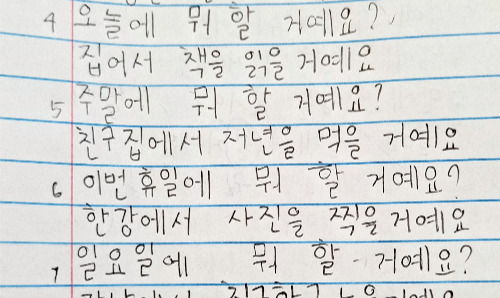 4 오늘에 뭐 할 거예요?
집어서 책을 읽을 거예요
5 주말에 뭐 할 거예요?
친구집에서 저년을 먹을 거예요
6 이번 휴일에 뭐 할 거예요?
한강에서 사진을 찍을 거예요
7 일요일에 뭐 할 거예요?